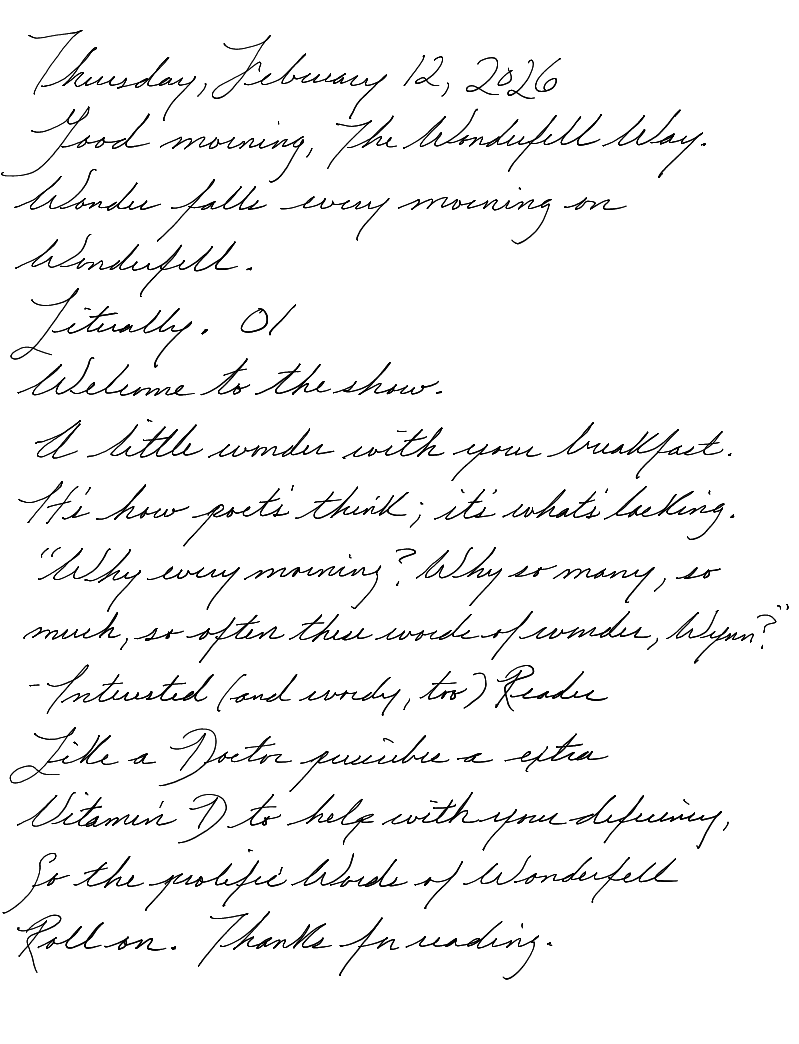 Thursday, February 12, 2026
Good morning, The Wonderfell Way.
Wonder falls every morning on
Wonderfell.
Literally. 01
Welcome to the show.
A little wonder with your breakfast.
It's how poets think; it's what's lacking.
“Why every morning? Why so many, so
much, so often these words of wonder, Wynn?”
-Interested (and wordy, too) Reader
Like a Doctor prescribe a extra
Vitamin D to help with your deficiency,
So the prolific Words of Wonderfell
Roll on. Thanks for reading.